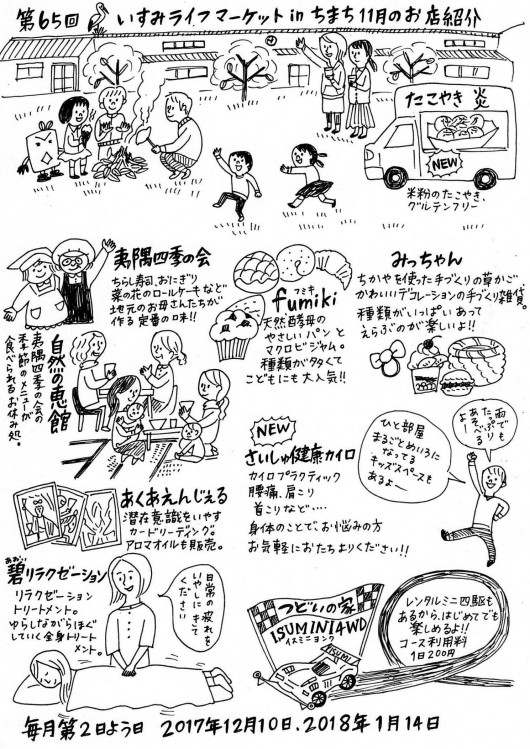 第65回 いすみライフマーケット in ちまち 11月のお店紹介
たこやき 炎
NEW
米粉のたこやき、
グルテンフリー
夷隅四季の会
ちらし寿司、おにぎり
菜の花のロールケーキなど
地元のお母さんたちが
作る定番の味!!
フミキ
fumiki
天然酵母の
やさしいパンと
マクロビジャム。
種類が多くて
こどもにも大人気!!
みっちゃん
ちがやを使った手づくりの草かご
かわいいデコレーションの手づくり雑貨。
種類がいっぱいあって
えらぶのが楽しいよ!!
自然の恵館
夷隅四季の会の
季節のメニューが
食べられるお休み処。
NEW
さいしゅ健康カイロ
カイロプラクティック
腰痛、肩こり
首こりなど・・・・
身体のことで、お悩みの方
お気軽におたちよりください!!
ひと部屋
まるごとめいろに
なってる
キッズスペースも
あるよー
雨でも
たっぷり
あそべる
よ
あくあえんじぇる
潜在意識をいやす
カードリーディング。
アロマオイルも販売。
碧リラクゼーション
リラクゼーション
トリートメント。
ゆらしながらほぐ
していく全身トリート
メント。
日常の疲れを
いやしにきて
ください
つどいの家
ISUMINI4WD
イスミニヨンク
ISUMI
レンタルミニ四駆も
あるから、はじめてでも
楽しめるよ!!
コース利用料
1日200円
毎月第2日よう日 2017年12月10日、2018年1月14日